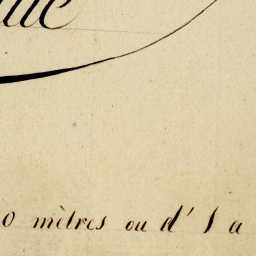 0 mètres ou d' 1 a